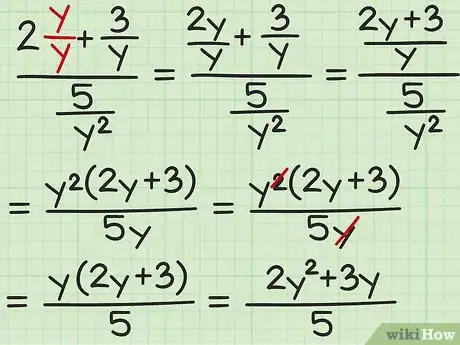 (2 y/y + 3/y)/(5/y²) = (2y/y + 3/y)/(5/y²) = ((2y+3)/y)/(5/y²)
= y²(2y+3)/5y = y²(2y+3)/5y
= y(2y+3)/5 = 2y²+3y/5
wikiHow